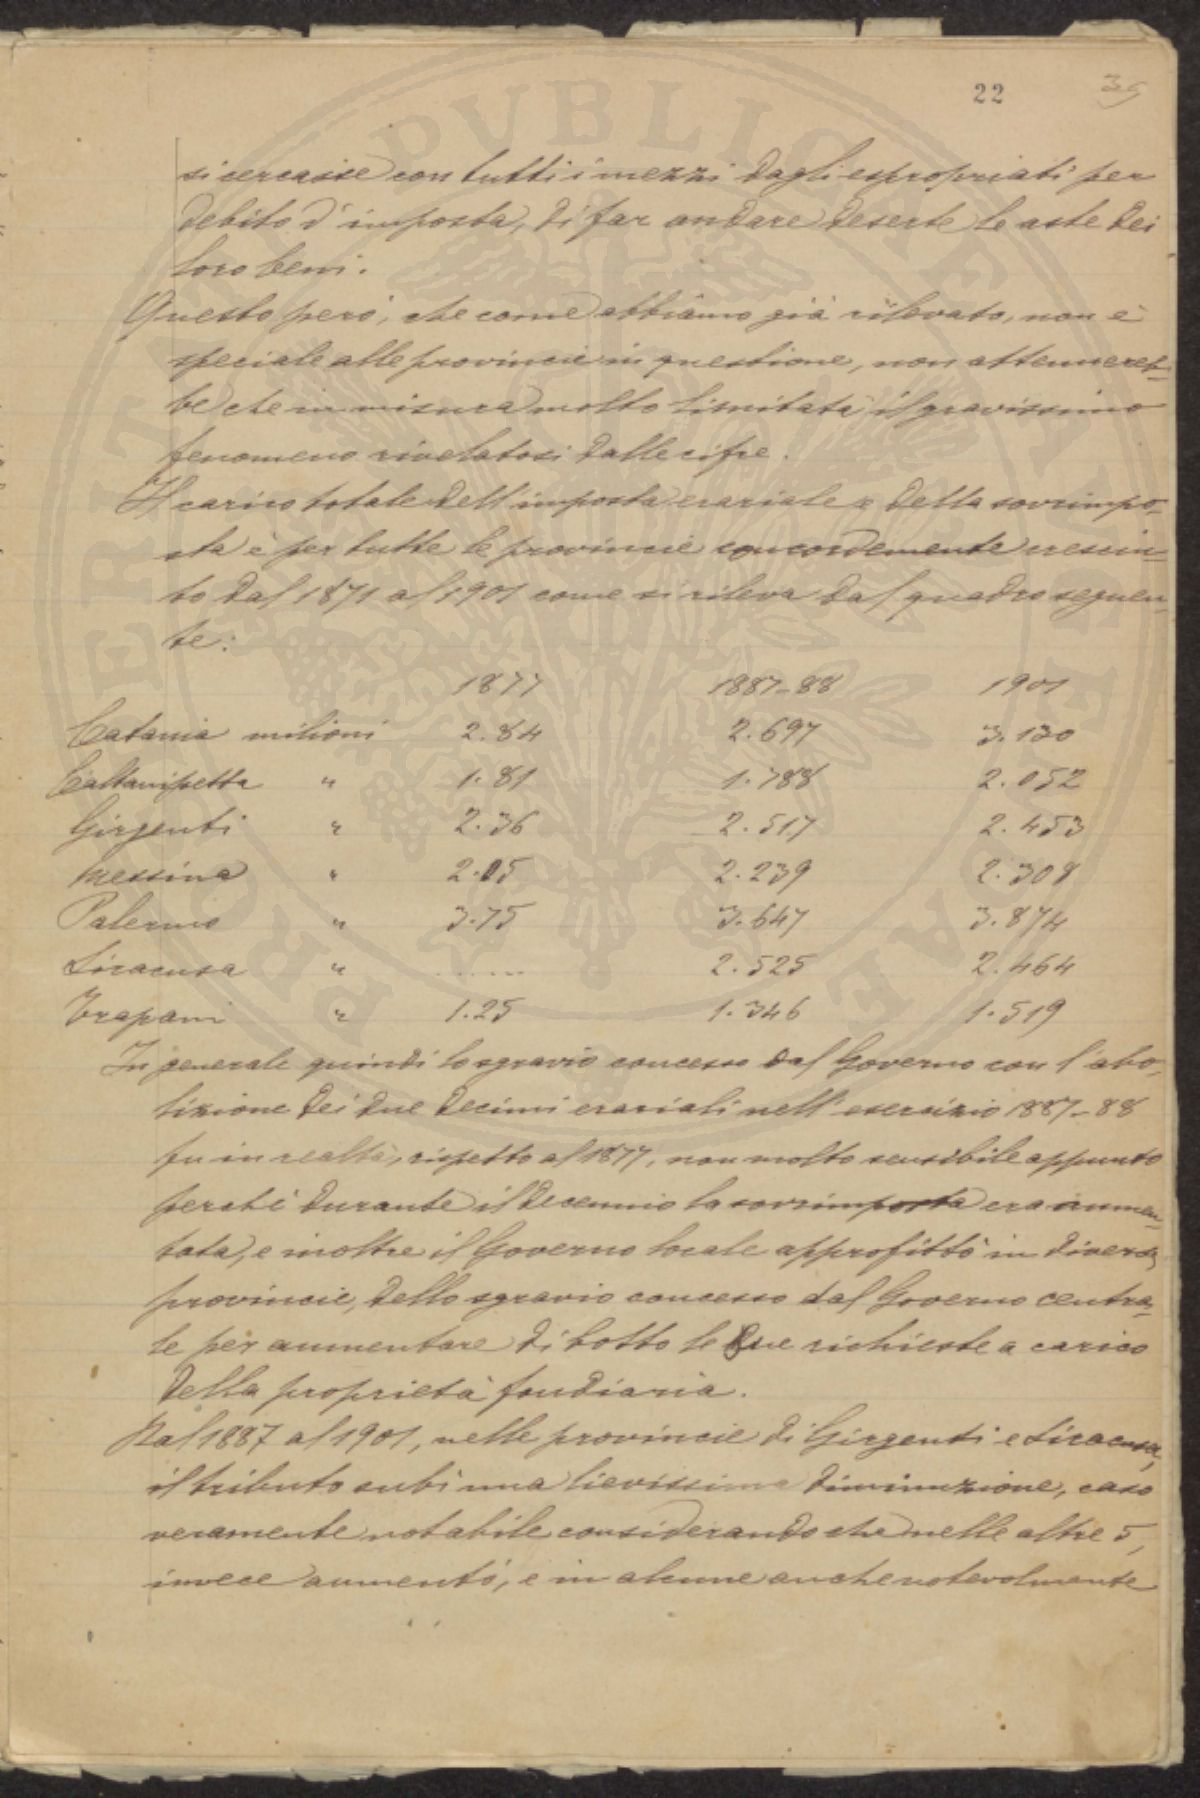 22
39
si cercasse con tutti i mezzi dagli espropriati per
debito d'imposta, di far andare deserte le aste dei
loro beni.
Questo però, che come abbiamo già rilevato, non è
speciale alle provincie in questione, non attenuereb-
be che in misura molto limitata il gravissimo
fenomeno rivelatosi dalle cifre.
Il carico totale dell'imposta erariale e della sovrimpo-
sta è per tutte le provincie concordemente cresciu-
to dal 1871 al 1901 come si rileva dal quadro seguen-
te:
1877 1887-88 1901
Catania milioni 2.84 2.697 3.130
Caltanissetta " 1.81 1.788 2.052
Girgenti " 2.36 2.517 2.453
Messina " 2.05 2.239 2.308
Palermo " 3.75 3.647 3.874
Siracusa " ...... 2.525 2.464
Trapani " 1.25 1.346 1.519
In generale quindi lo sgravio concesso dal Governo con l'abo-
lizione dei due decimi erariali nell'esercizio 1887-88
fu in realtà, rispetto al 1877, non molto sensibile appunto
perchè durante il decennio la sovrimposta era aumen-
tata, e inoltre il Governo locale approfittò in diverse
provincie, dello sgravio concesso dal Governo centra-
le per aumentare di botto le sue richieste a carico
della proprietà fondiaria.
Dal 1887 al 1901, nelle provincie di Girgenti e Siracusa,
il tributo subì una lievissima diminuzione, caso
veramente notabile considerando che nelle altre 5,
invece aumentò, e in alcune anche notevolmente
PROPRIETA PUBLICAE